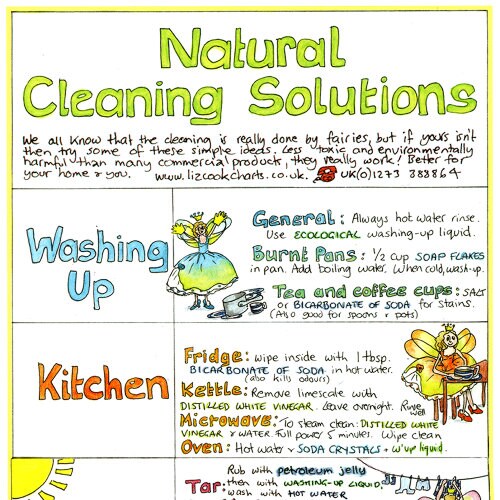 Natural
Cleaning Solutions
We all know that the cleaning is really done by fairies, but if yours isn't
then try some of these simple ideas. Less toxic and environmentally
harmful than many commercial products, they really work! Better for
your home & you. www.lizcookcharts.co.uk. ☎ UK(0)1273 383864
Washing
Up
General: Always hot water rinse.
Use ECOLOGICAL washing-up liquid.
Burnt Pans: ½ cup SOAP FLAKES
in pan. Add boiling water. When cold, wash-up.
Tea and coffee cups: SALT
or BICARBONATE OF SODA for stains.
(Also good for spoons & pots)
Kitchen
Fridge: wipe inside with 1 tbsp.
BICARBONATE OF SODA in hot water.
(also kills odours)
Kettle: Remove limescale with
DISTILLED WHITE VINEGAR. Leave overnight. Rinse
well
Microwave: To steam clean: DISTILLED WHITE
VINEGAR & WATER. Full power 5 minutes. Wipe clean
Oven: Hot water & SODA CRYSTALS + w'up liquid.
Rub with petroleum jelly
Tar: then with WASHING-UP LIQUID,
wash with HOT WATER